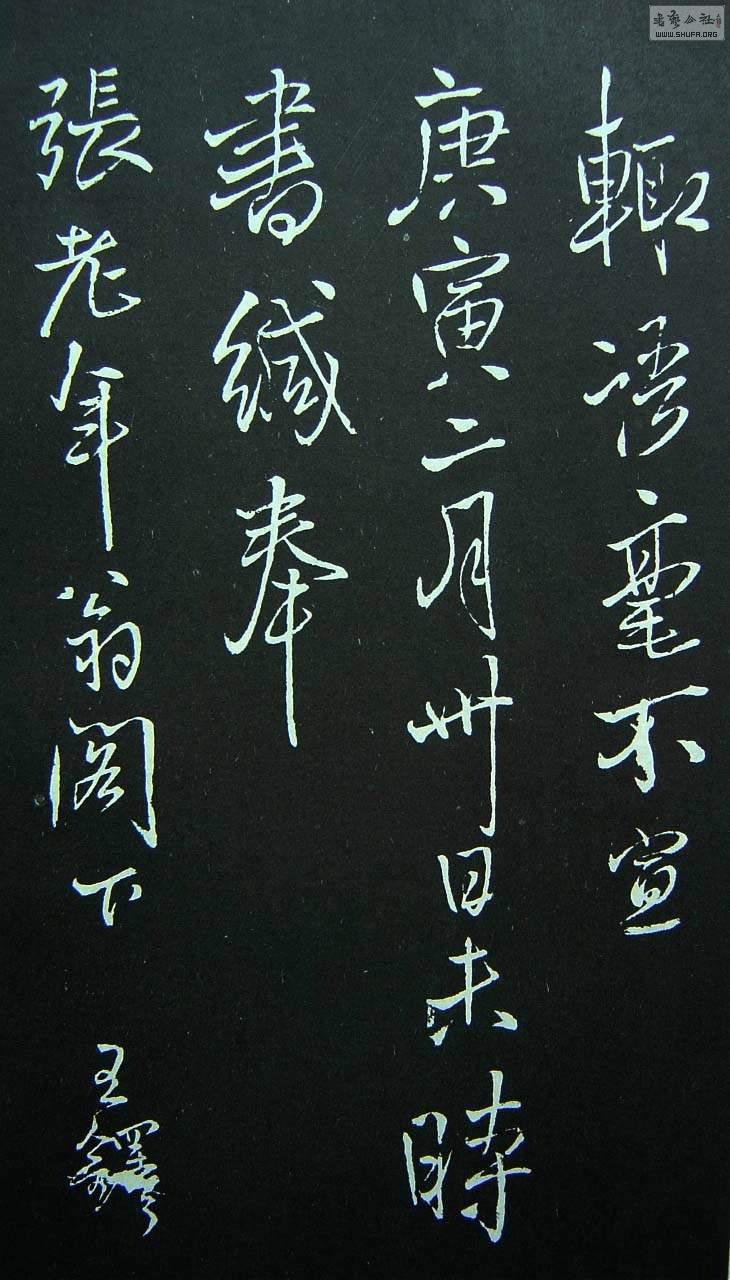 輙語毫不宣
庚寅二月卅日未時
書緘奉
張老年翁閣下
王鐸
書藝公社
WWW.SHUFA.ORG